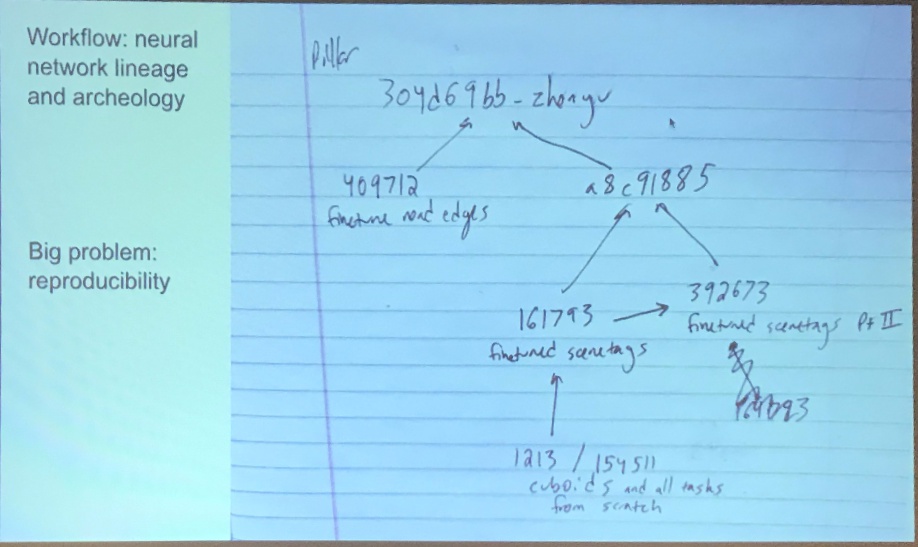 Workflow: neural
network lineage
and archeology
Big problem:
reproducibility
Pillar
304d69bb - zhongyu
409712
finetune road edges
a8c91885
161793
finetuned scenetags
392673
finetuned scenetags Pt II
1213 / 154511
cuboids and all tasks
from scratch